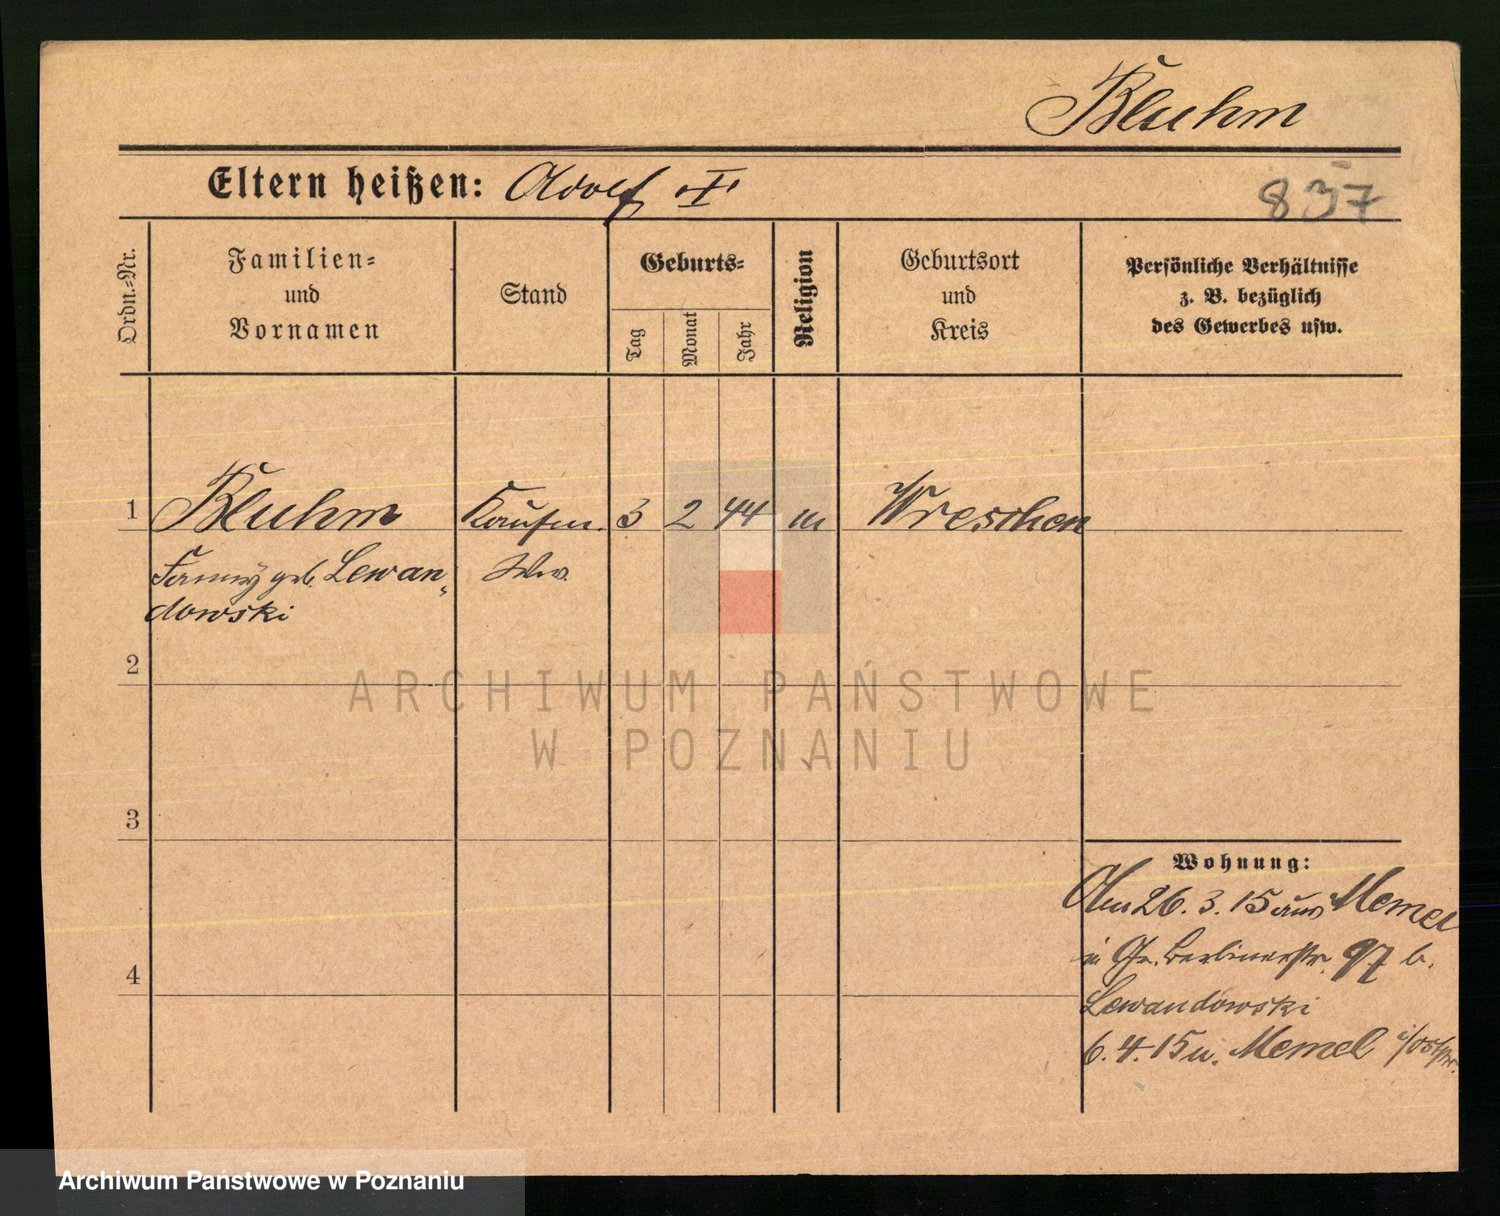 Bluhm
Eltern heißen: Adolf
837
Ordn.-Nr.
Familien-
und
Vornamen
Stand
Geburts-
Tag
Monat
Jahr
Religion
Geburtsort
und
Kreis
Persönliche Verhältnisse
z. B. bezüglich
des Gewerbes usw.
1 Bluhm Kaufm. 3 2 44 m Wreschen
Fanny geb. Lewan-
Ww.
dowski
2
ARCHIWUM PAŃSTWOWE
W POZNANIU
3
Wohnung:
Am 26. 3. 15 aus Memel
in Gr. Berlinerstr. 97 b.
4
Lewandowski
6. 4. 15 n. Memel i/Ostpr.
Archiwum Państwowe w Poznaniu